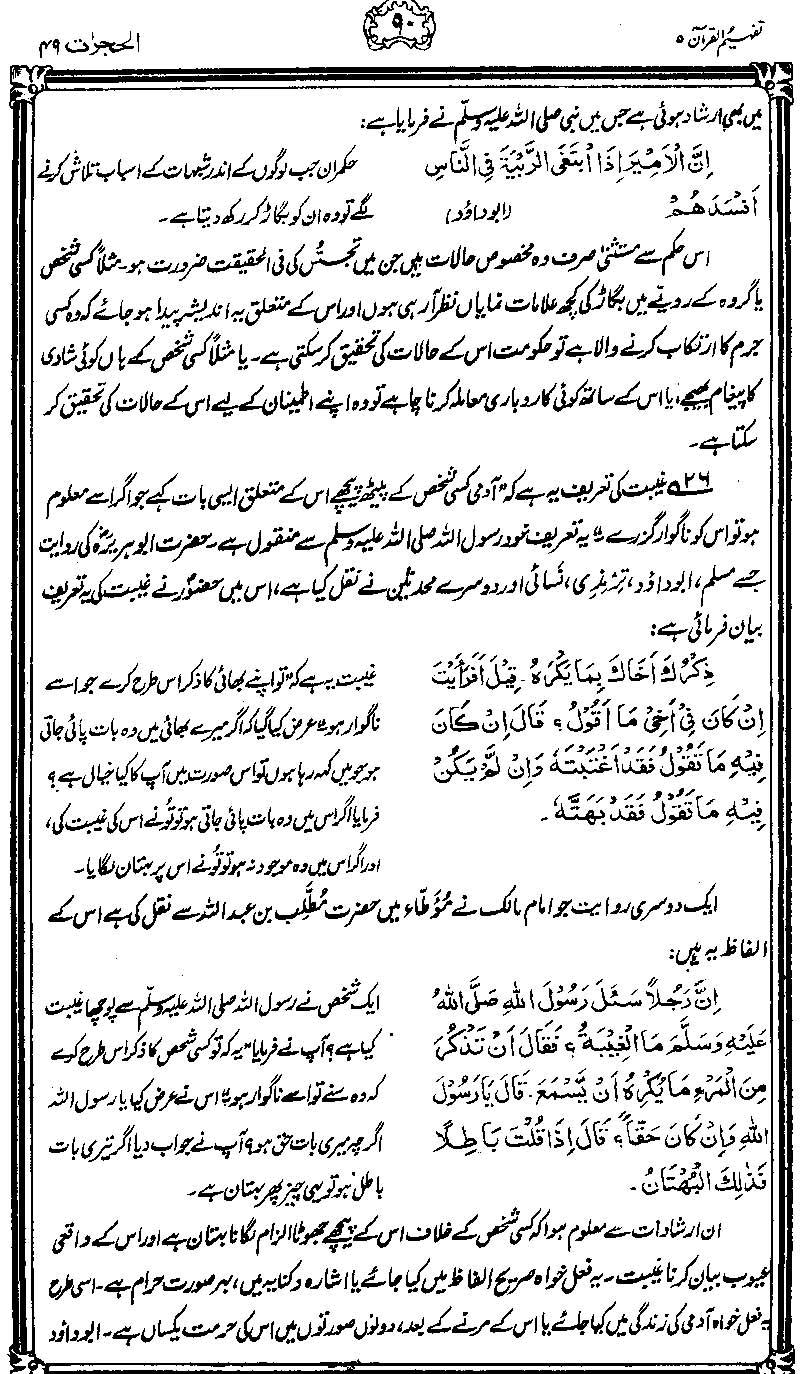 تفہیم القرآن ۵
۹۰
الحجرات ۴۹
میں بھی ارشاد ہوئی ہے جس میں نبی صلی اللہ علیہ وسلم نے فرمایا ہے:
اِنَّ الْاَمِیْرَ اِذَا ابْتَغَی الرِّیْبَۃَ فِی النَّاسِ
اَفْسَدَھُمْ (ابوداؤد)
حکمران جب لوگوں کے اندر شبہات کے اسباب تلاش کرنے
لگے تو وہ ان کو بگاڑ کر رکھ دیتا ہے۔
اس حکم سے مستثنیٰ صرف وہ مخصوص حالات ہیں جن میں تجسُّس کی فی الحقیقت ضرورت ہو۔ مثلاً کسی شخص
یا گروہ کے رویّے میں بگاڑ کی کچھ علامات نمایاں نظر آ رہی ہوں اور اس کے متعلق یہ اندیشہ پیدا ہو جائے کہ وہ کسی
جرم کا ارتکاب کرنے والا ہے تو حکومت اس کے حالات کی تحقیق کر سکتی ہے۔ یا مثلاً کسی شخص کے ہاں کوئی شادی
کا پیغام بھیجے، یا اس کے ساتھ کوئی کاروباری معاملہ کرنا چاہے تو وہ اپنے اطمینان کے لیے اس کے حالات کی تحقیق کر
سکتا ہے۔
۲۶ غیبت کی تعریف یہ ہے کہ "آدمی کسی شخص کے پیٹھ پیچھے اس کے متعلق ایسی بات کہے جو اگر اسے معلوم
ہو تو اس کو ناگوار گزرے"۔ یہ تعریف خود رسول اللہ صلی اللہ علیہ وسلم سے منقول ہے۔ حضرت ابوہریرہؓ کی روایت
جسے مسلم، ابوداؤد، ترمذی، نسائی اور دوسرے محدثین نے نقل کیا ہے، اس میں حضورؐ نے غیبت کی یہ تعریف
بیان فرمائی ہے:
ذِکْرُكَ اَخَاكَ بِمَا یَکْرَہُ۔ قِیْلَ اَفَرَأَیْتَ
اِنْ کَانَ فِیْ اَخِیْ مَا اَقُوْلُ؟ قَالَ اِنْ کَانَ
فِیْہِ مَا تَقُوْلُ فَقَدِ اغْتَبْتَہٗ وَاِنْ لَّمْ یَکُنْ
فِیْہِ مَا تَقُوْلُ فَقَدْ بَھَتَّہٗ۔
غیبت یہ ہے کہ "تو اپنے بھائی کا ذکر اس طرح کرے جو اسے
ناگوار ہو"۔ عرض کیا گیا کہ اگر میرے بھائی میں وہ بات پائی جاتی
ہو جو میں کہہ رہا ہوں تو اس صورت میں آپ کا کیا خیال ہے؟
فرمایا اگر اس میں وہ بات پائی جاتی ہو تو تُو نے اس کی غیبت کی،
اور اگر اس میں وہ موجود نہ ہو تو تُو نے اس پر بہتان لگایا۔
ایک دوسری روایت جو امام مالک نے مُؤطّاء میں حضرت مُطَّلِب بن عبداللہ سے نقل کی ہے اس کے
الفاظ یہ ہیں:
اِنَّ رَجُلًا سَئَلَ رَسُوْلَ اللہِ صَلَّی اللہُ
عَلَیْہِ وَسَلَّمَ مَا الْغِیْبَۃُ؟ فَقَالَ اَنْ تَذْکُرَ
مِنَ الْمَرْءِ مَا یَکْرَہُ اَنْ یَّسْمَعَ۔ قَالَ یَا رَسُوْلَ
اللہِ وَاِنْ کَانَ حَقًّا؟ قَالَ اِذَا قُلْتَ بَاطِلًا
فَذٰلِكَ الْبُھْتَانُ۔
ایک شخص نے رسول اللہ صلی اللہ علیہ وسلم سے پوچھا غیبت
کیا ہے؟ آپ نے فرمایا "یہ کہ تو کسی شخص کا ذکر اس طرح کرے
کہ وہ سنے تو اسے ناگوار ہو"۔ اس نے عرض کیا یا رسول اللہ
اگرچہ میری بات حق ہو؟ آپ نے جواب دیا اگر تیری بات
باطل ہو تو یہی چیز پھر بہتان ہے۔
ان ارشادات سے معلوم ہوا کہ کسی شخص کے خلاف اس کے پیچھے جھوٹا الزام لگانا بہتان ہے اور اس کے واقعی
عیوب بیان کرنا غیبت۔ یہ فعل خواہ صریح الفاظ میں کیا جائے یا اشارہ و کنایہ میں، بہرصورت حرام ہے۔ اسی طرح
یہ فعل خواہ آدمی کی زندگی میں کیا جائے یا اس کے مرنے کے بعد، دونوں صورتوں میں اس کی حرمت یکساں ہے۔ ابوداؤد